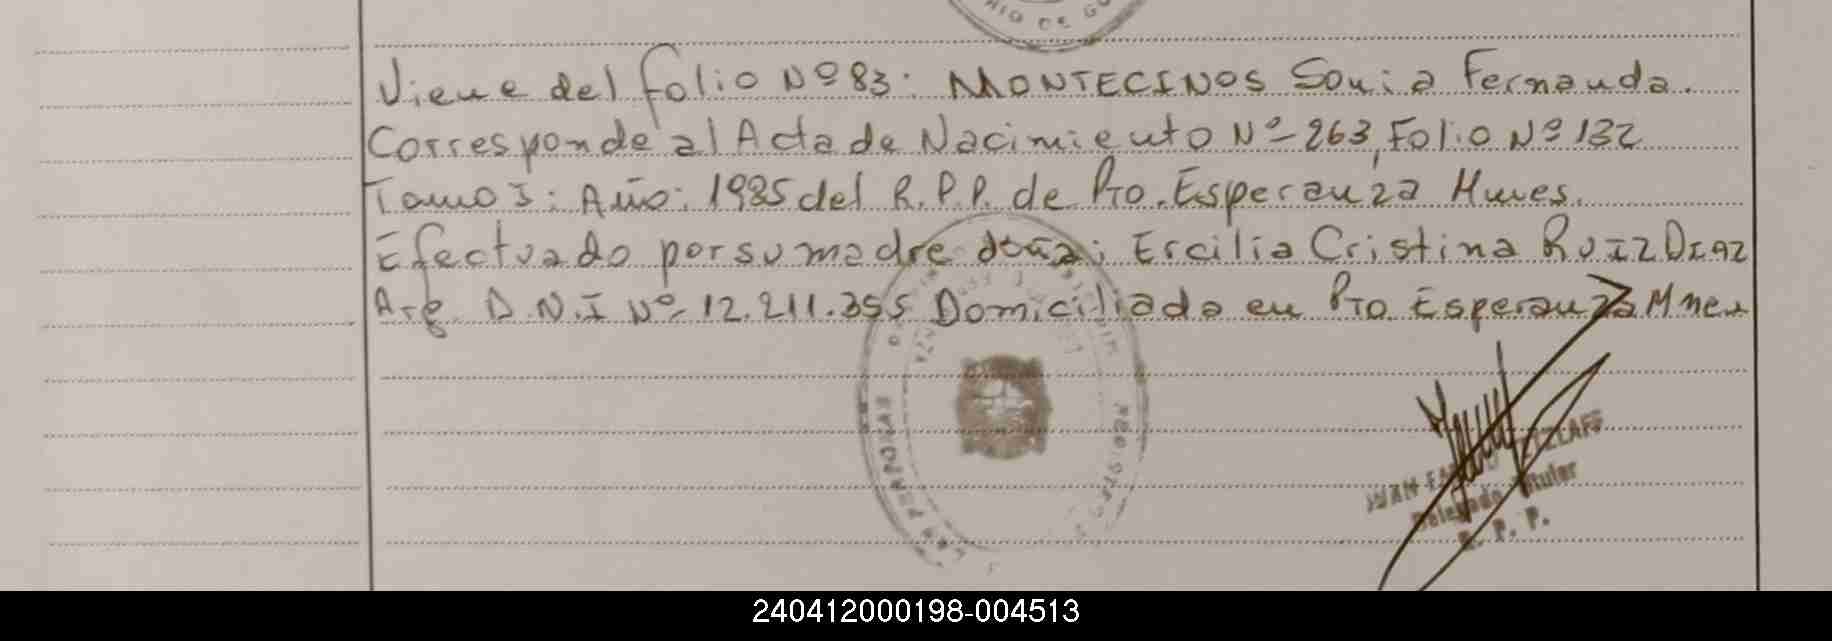 Viene del folio Nº 83: MONTECINOS Sonia Fernanda.
Corresponde al Acta de Nacimiento Nº 263, Folio Nº 132
Tomo I: Año: 1985 del R.P.P. de Pto. Esperanza Mnes.
Efectuado por su madre doña: Ercilia Cristina RUIZ DIAZ
Arg. D.N.I Nº 12.211.355 Domiciliada en Pto. Esperanza Mnes
JUAN
Delegado Titular
R. P. P.
240412000198-004513